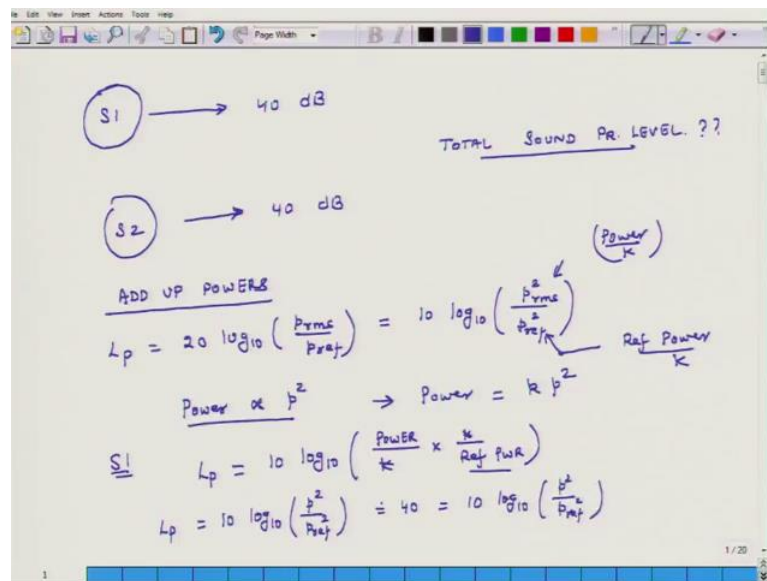 le Edit View Insert Actions Tools Help
Page Width B I
S1 → 40 dB
TOTAL SOUND PR. LEVEL. ??
S2 → 40 dB
ADD UP POWERS
(Power/k)
Lp = 20 log10 (prms/pref) = 10 log10 (p²rms/p²ref)
Ref Power/k
Power ∝ p² → Power = k p²
S1 Lp = 10 log10 (POWER/k × k/Ref PWR)
Lp = 10 log10 (p²/pref²) = 40 = 10 log10 (p²/pref²)
1/20
1